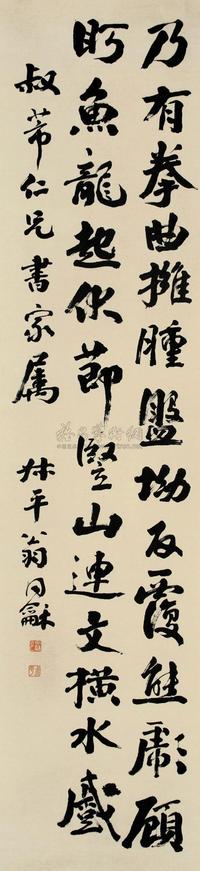 乃有拳曲擁腫盤坳反覆熊彪顧
眄魚龍起伏節豎山連文橫水蹙
叔芾仁兄書家屬 叔平翁同龢